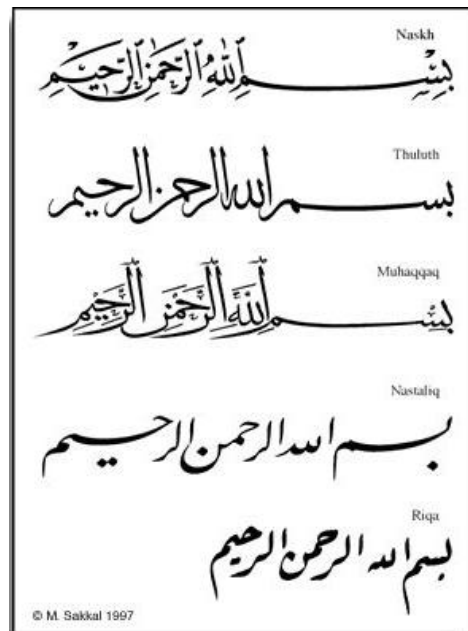 Naskh
بِسْمِ اللهِ الرَّحْمٰنِ الرَّحِيْمِ
Thuluth
بسم الله الرحمن الرحيم
Muhaqqaq
بِسْمِ اللَّهِ الرَّحْمٰنِ الرَّحِيْمِ
Nastaliq
بسم الله الرحمن الرحیم
Riqa
بسم الله الرحمن الرحيم
© M. Sakkal 1997